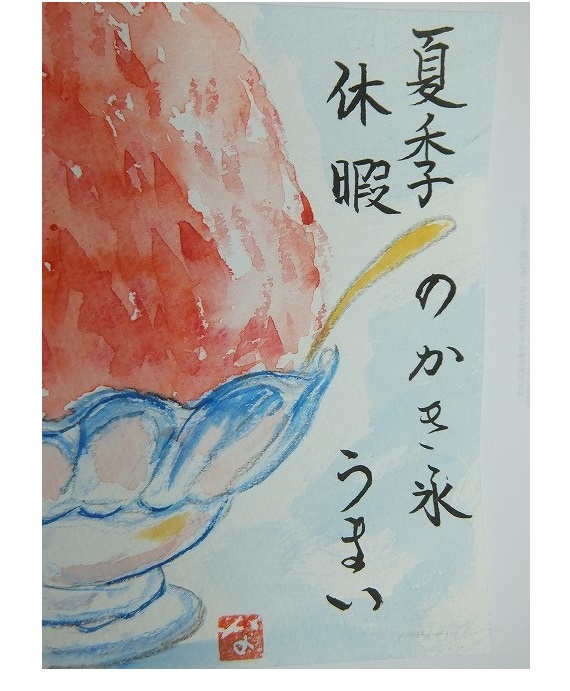 夏季
休暇
のかき氷
うまい